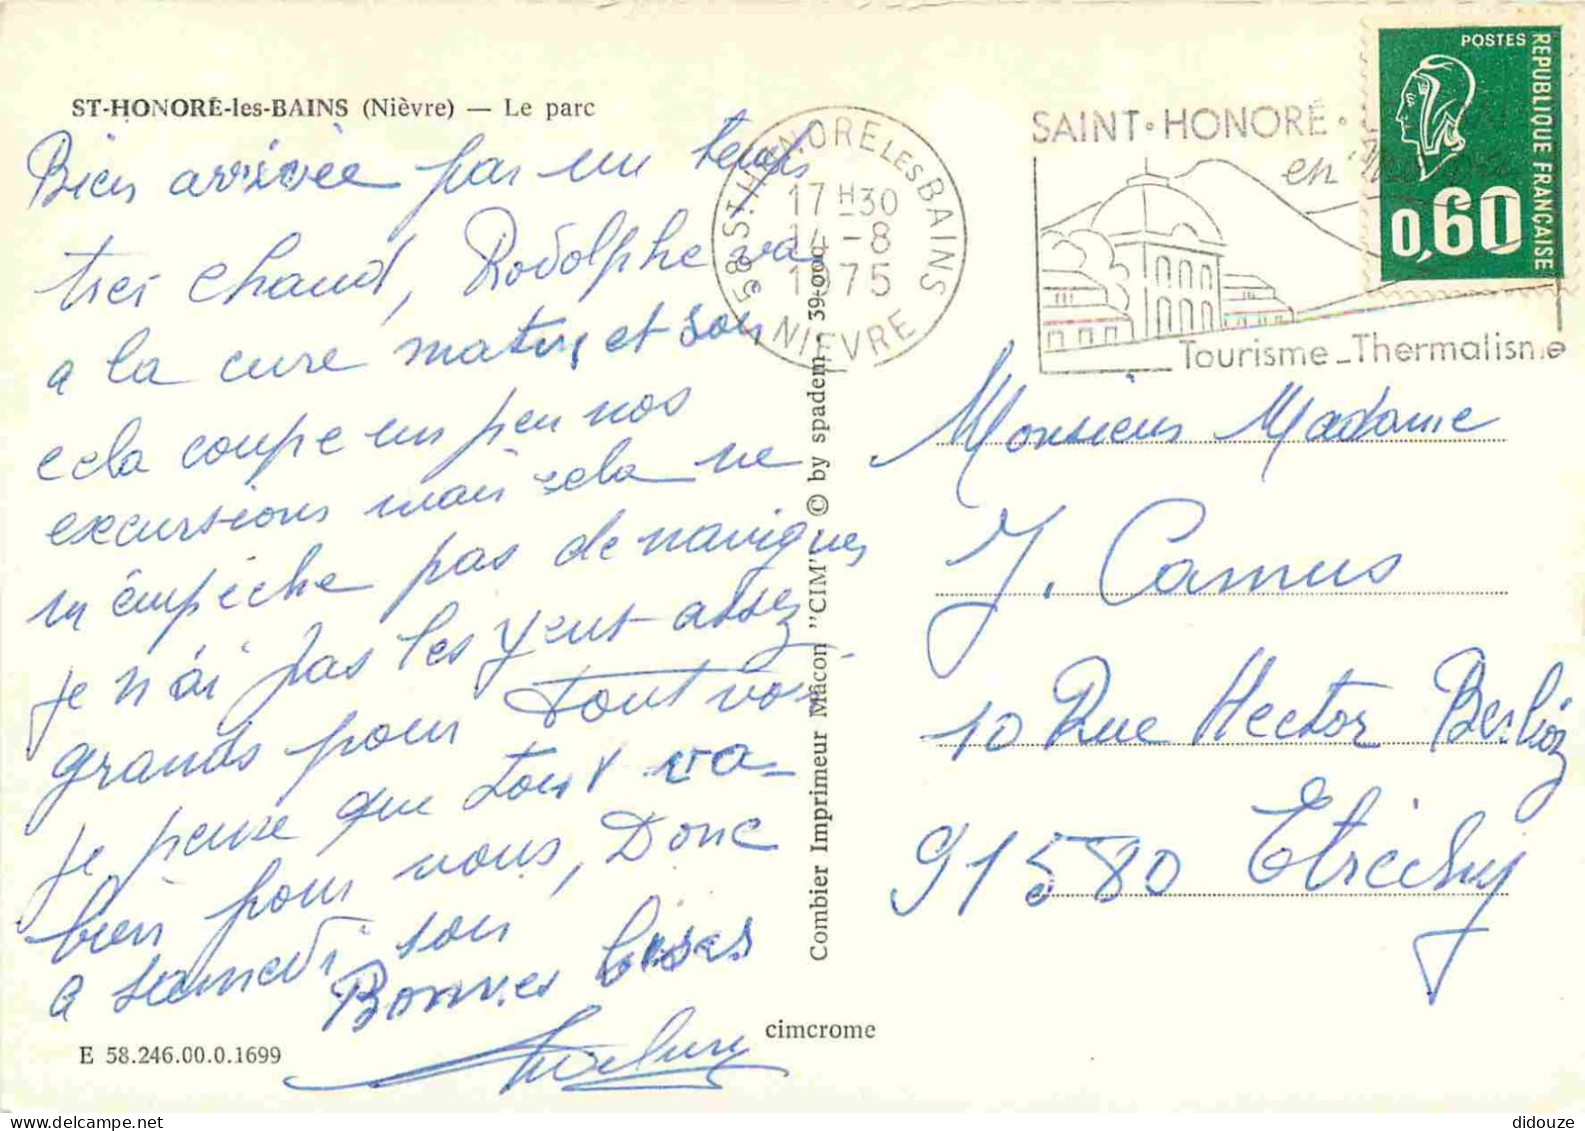 ST-HONORÉ-les-BAINS (Nièvre) — Le parc
Bien arrivée par un temps
tres chaud, Rodolphe va
a la cure matin et soir
cela coupe un peu nos
excursions mais cela ne
m'empêche pas de naviguer
je n'ai pas les yeux assez
grands pour tout voir
je pense que tout va
bien pour vous, Donc
a samedi soir
Bonnes bises
E 58.246.00.0.1699
cimcrome
Combier Imprimeur Mâcon "CIM" © by spadem 39-000
58 ST. HONORÉ LES BAINS
17H30
14-8
1975
NIEVRE
SAINT·HONORÉ·
en
Tourisme_Thermalisme
POSTES
REPUBLIQUE FRANÇAISE
0,60
Monsieur Madame
J. Camus
10 Rue Hector Berlioz
91580 Etréchy
didouze